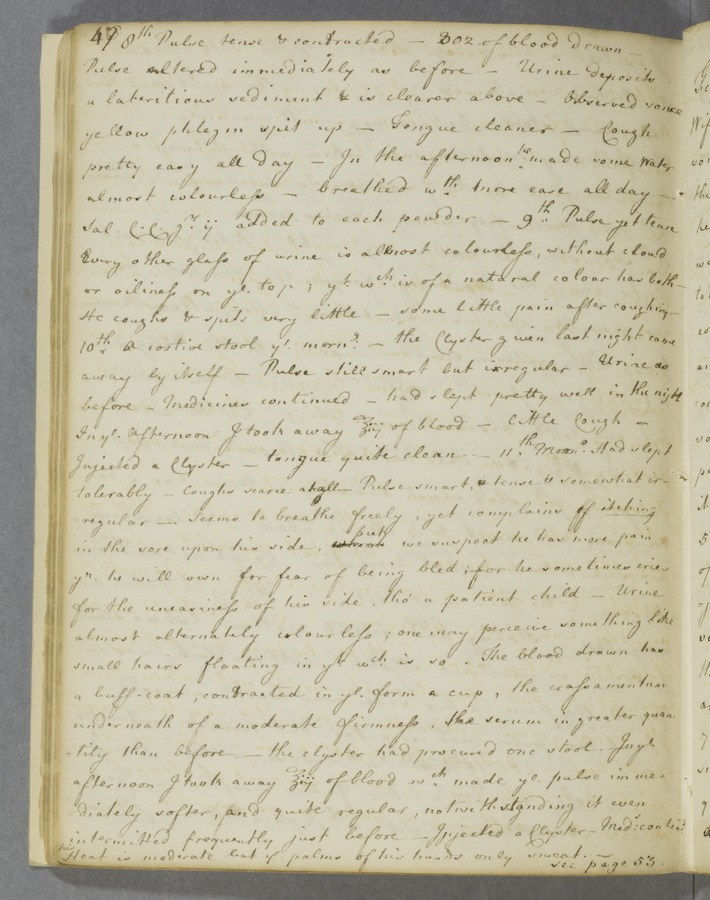 47 8th Pulse tense & contracted — of blood drawn —
Pulse altered immediately as before — Urine deposits
a lateritious sediment & is clearer above — Observed some
yellow phlegm spit up — Tongue cleaner — Cough
pretty easy all day — In the afternoon he made some water
almost colourless — breathed wth more ease all day —
Sal. C.C. gr ij added to each powder — 9th Pulse yet tense
Every other glass of urine is almost colourless, without cloud
or oiliness on ye. top; yt. wch is of a natural colour has both —
He coughs & spits very little — some little pain after coughing —
10th a costive stool ys. morng. — the Clyster given last night came
away by itself — Pulse still smart but irregular — Urine as
before — Medicines continued — had slept pretty well in the night
In ye. afternoon I took away ℥iij of blood — little Cough —
Injected a Clyster — tongue quite clean — 11th Morng. Had slept
tolerably — Coughs scarce at all — Pulse smart, tense & somewhat ir-
-regular — Seems to breathe freely, yet complains of itching
in the sore upon his side, but we suspect he has more pain
yn. he will own for fear of being bled; for he sometimes cries
for the uneasiness of his side, tho' a patient child — Urine
almost alternately colourless; one may perceive something like
small hairs floating in yt. wch. is so. The blood drawn has
a buff-coat, contracted in ye. form a cup, the crassamentum
underneath of a moderate firmness, the serum in greater quan
-tity than before — the clyster had procured one stool. In ye.
afternoon I took away ℥iij of blood wch made ye. pulse imme-
-diately softer, and quite regular, notwithstanding it even
intermitted frequently just before — Injected a Clyster — Meds. contind.
his Heat is moderate but ye. palms of his hands only sweat. —
see page 53.